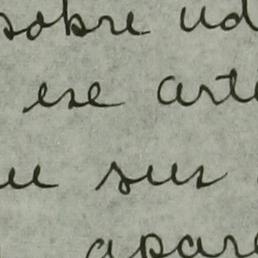 sobre ud
ese arte
sus
apare